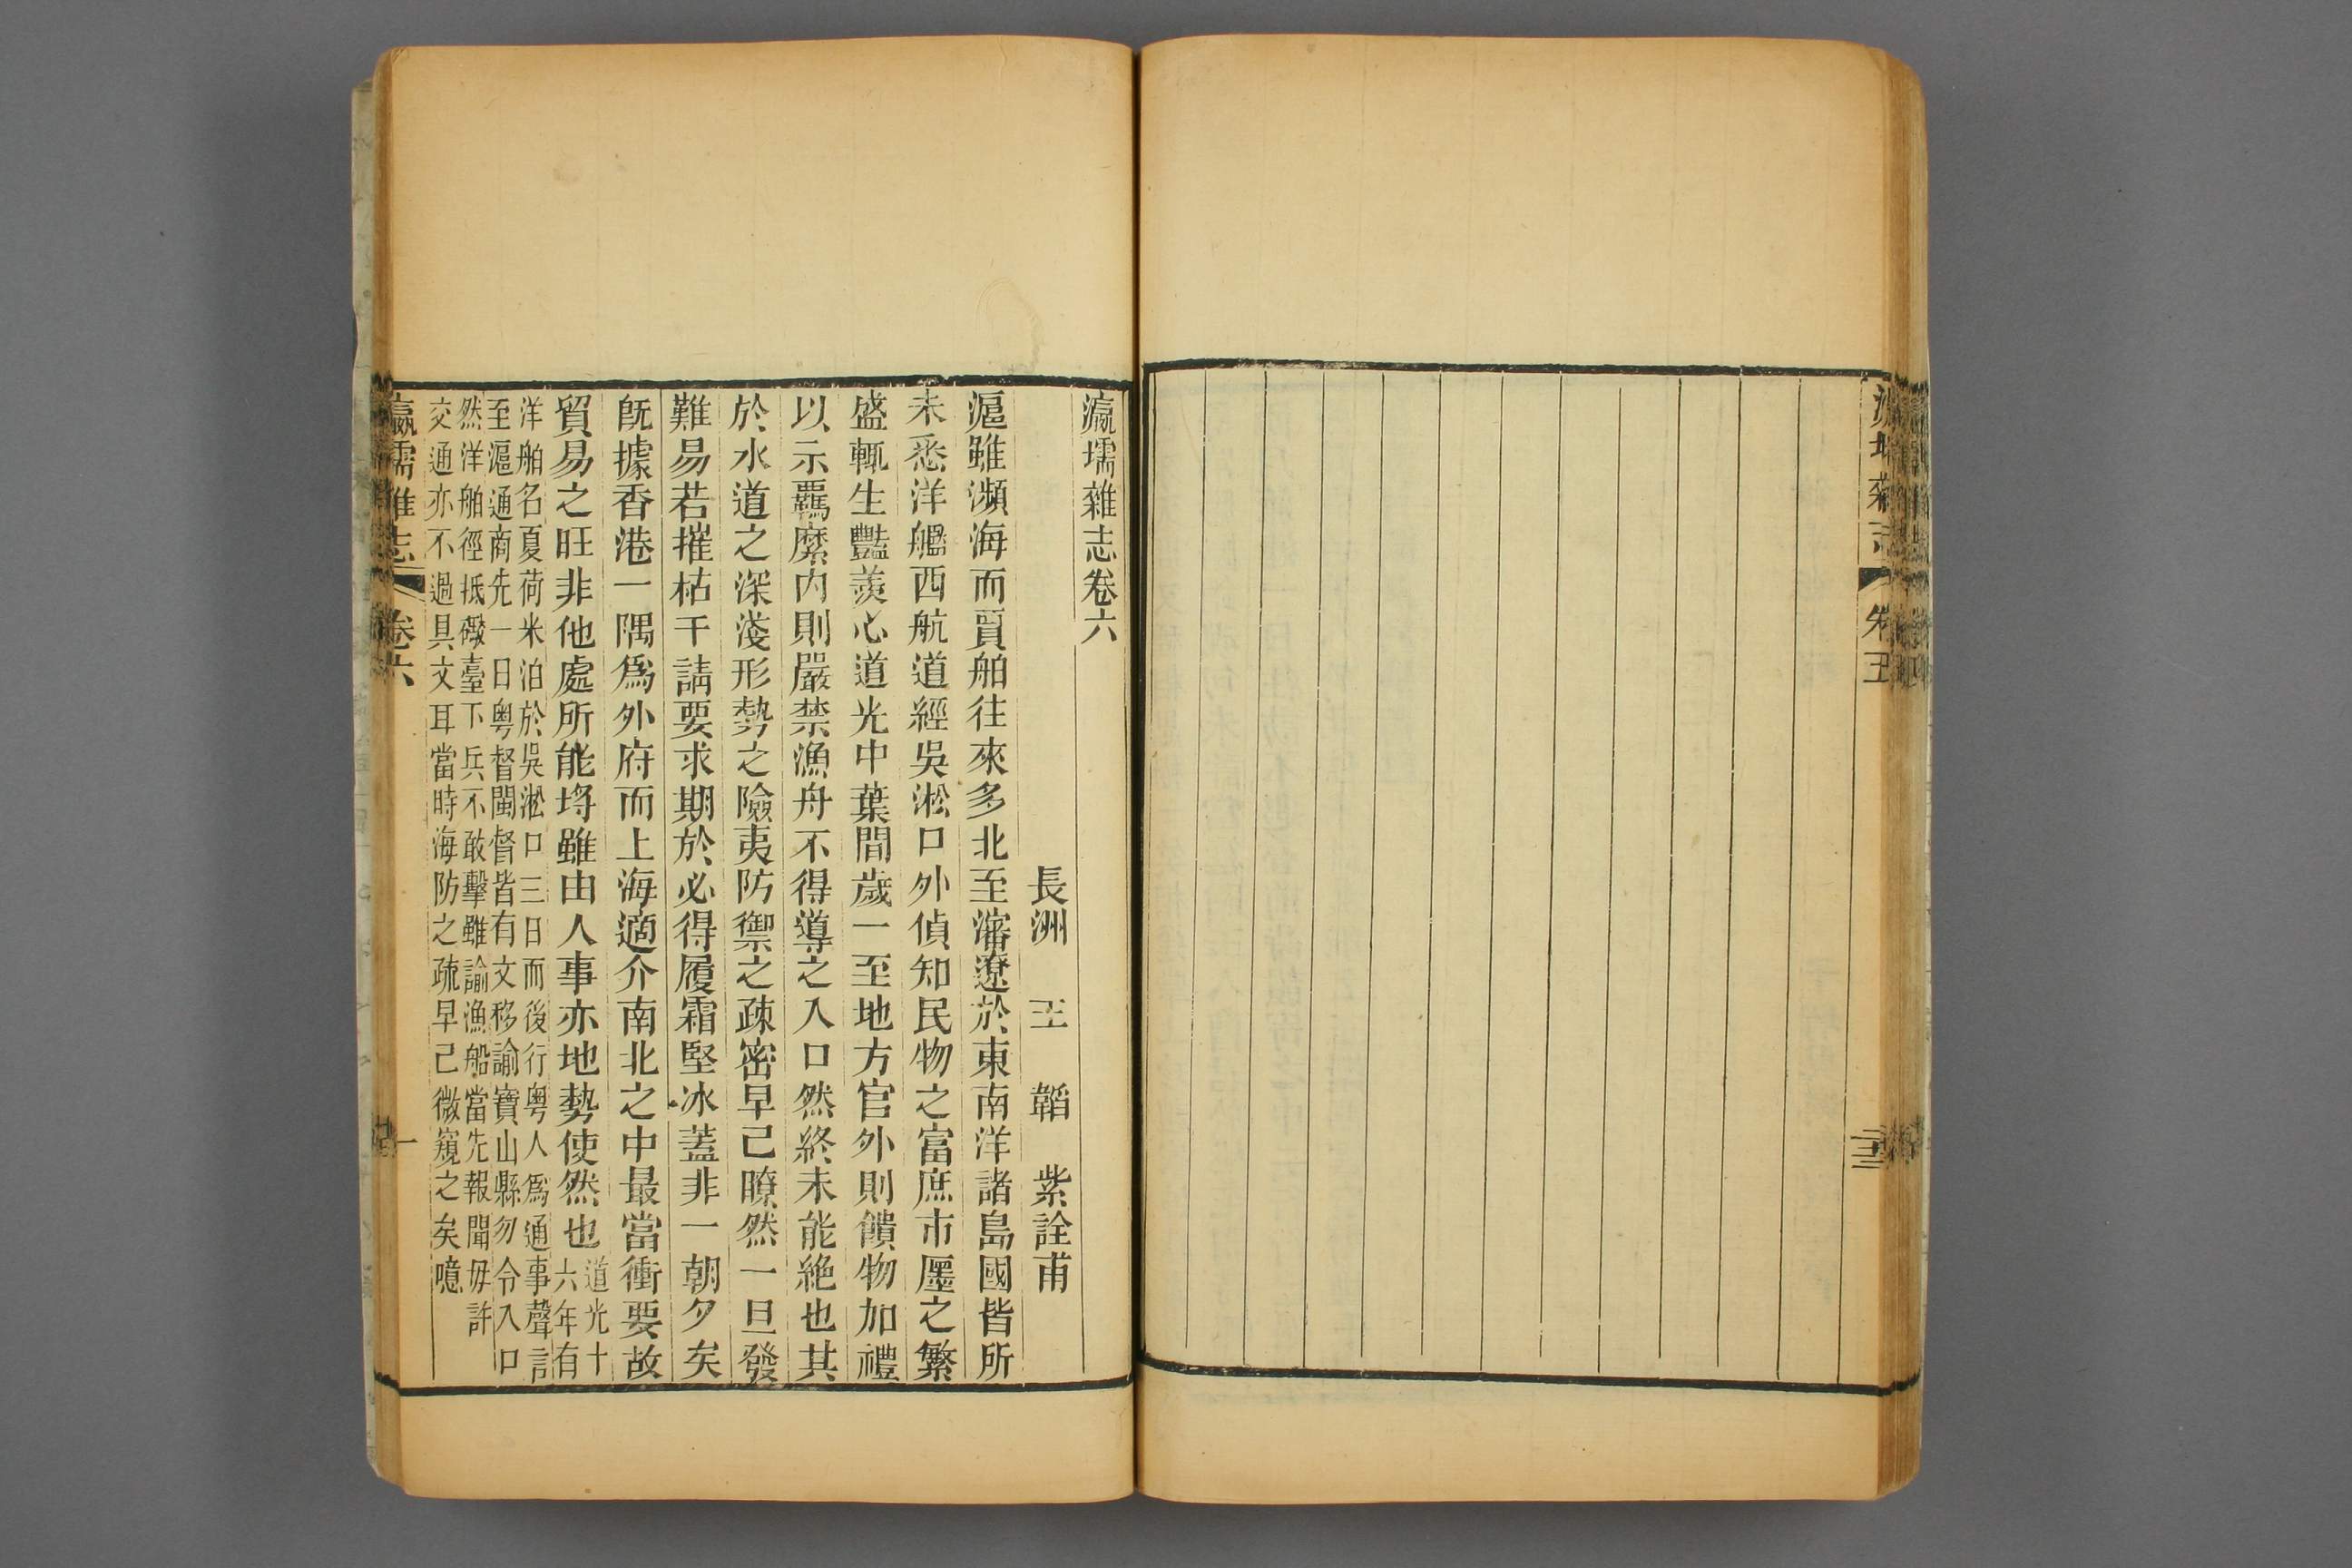 瀛壖雜志卷六
長洲 王 韜 紫詮甫
滬雖瀕海而賈舶往來多北至瀋遼於東南洋諸島國皆所
未悉洋艦西航道經吳淞口外偵知民物之富庶市廛之繁
盛輒生豔羨心道光中葉間歲一至地方官外則饋物加禮
以示羈縻內則嚴禁漁舟不得導之入口然終未能絶也其
於水道之深淺形勢之險夷防禦之疎密早已瞭然一旦發
難易若摧枯干請要求期於必得履霜堅冰蓋非一朝夕矣
旣據香港一隅爲外府而上海適介南北之中最當衝要故
貿易之旺非他處所能埒雖由人事亦地勢使然也
道光十
六年有
洋舶名夏荷米泊於吳淞口三日而後行粵人爲通事聲言
至滬通商先一日粵督閩督皆有文移諭寶山縣勿令入口
然洋舶徑抵礮臺下兵不敢擊雖諭漁船當先報聞毋許
交通亦不過具文耳當時海防之疏早已微窺之矣噫
瀛壖雜志 卷六 一